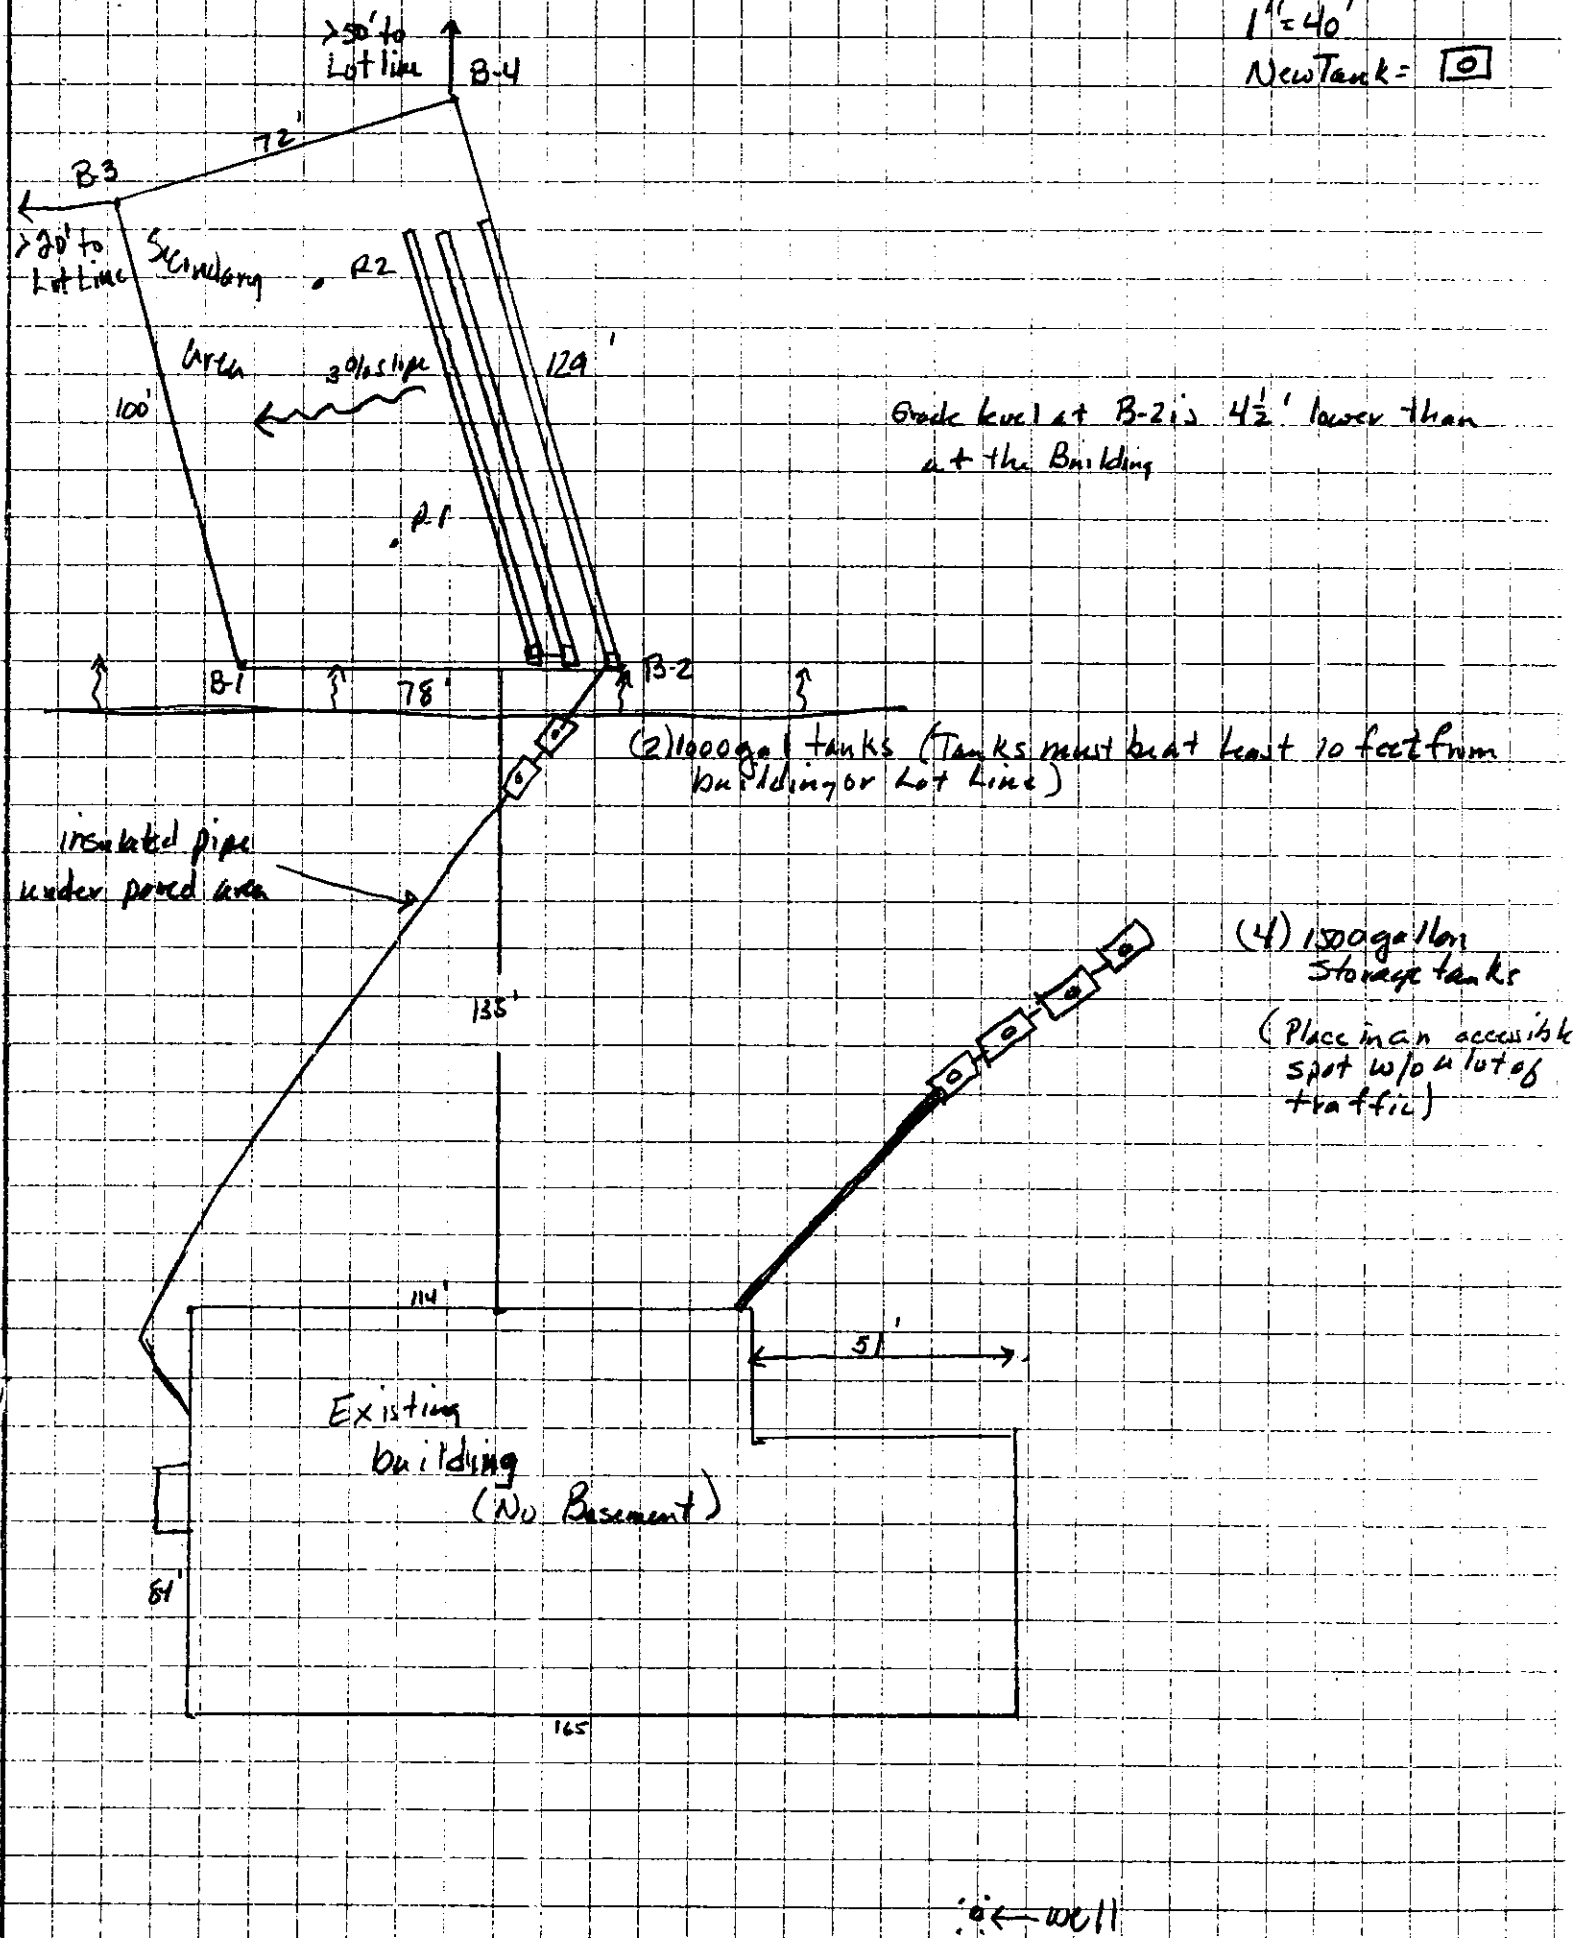 1"=40'
New Tank =
>50' to
Lot line
B-4
72'
B-3
>20' to
Lot Line
Secondary
area
P.2
3% slope
129'
100'
Grade level at B-2 is 4½' lower than
at the Building
P.1
B-1
78'
B-2
(2) 1000 gal tanks (Tanks must be at least 10 feet from
building or Lot Line)
insulated pipe
under paved area
135'
(4) 1500 gallon
Storage tanks
(Place in an accessible
spot w/o a lot of
traffic)
114'
51'
Existing
building
(No Basement)
84'
165
well